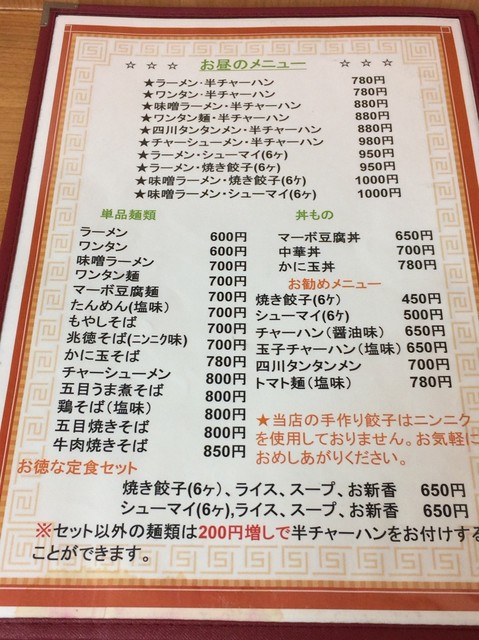 ☆ ☆ ☆ お昼のメニュー ☆ ☆ ☆
★ラーメン・半チャーハン 780円
★ワンタン・半チャーハン 780円
★味噌ラーメン・半チャーハン 880円
★ワンタン麺・半チャーハン 880円
★四川タンタンメン・半チャーハン 880円
★チャーシューメン・半チャーハン 980円
★ラーメン・シューマイ(6ヶ) 950円
★ラーメン・焼き餃子(6ヶ) 950円
★味噌ラーメン・焼き餃子(6ヶ) 1000円
★味噌ラーメン・シューマイ(6ヶ) 1000円
単品麺類
ラーメン 600円
ワンタン 600円
味噌ラーメン 700円
ワンタン麺 700円
マーボ豆腐麺 700円
たんめん(塩味) 700円
もやしそば 700円
兆徳そば(ニンニク味) 700円
かに玉そば 780円
チャーシューメン 800円
五目うま煮そば 800円
鶏そば（塩味） 800円
五目焼きそば 800円
牛肉焼きそば 850円
丼もの
マーボ豆腐丼 650円
中華丼 700円
かに玉丼 780円
お勧めメニュー
焼き餃子(6ヶ) 450円
シューマイ(6ヶ) 500円
チャーハン（醤油味） 650円
玉子チャーハン（塩味） 650円
四川タンタンメン 700円
トマト麺（塩味） 780円
★当店の手作り餃子はニンニク
を使用しておりません。お気軽に
おめしあがりください。
お徳な定食セット
焼き餃子(6ヶ)、ライス、スープ、お新香 650円
シューマイ(6ヶ),ライス、スープ、お新香 650円
※セット以外の麺類は200円増しで半チャーハンをお付けする
ことができます。